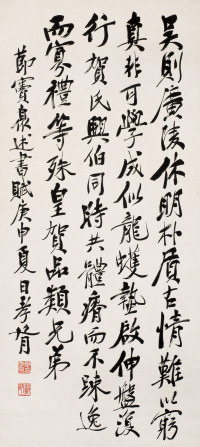 吳則廣陵休明朴質古情難以窮
真非可學成似龍蠖蟄啟伸盤復
行賀氏興伯同時共體瘠而不踈逸
而寡禮等殊皇賀品類兄弟
節竇臮述書賦庚申夏日孝胥